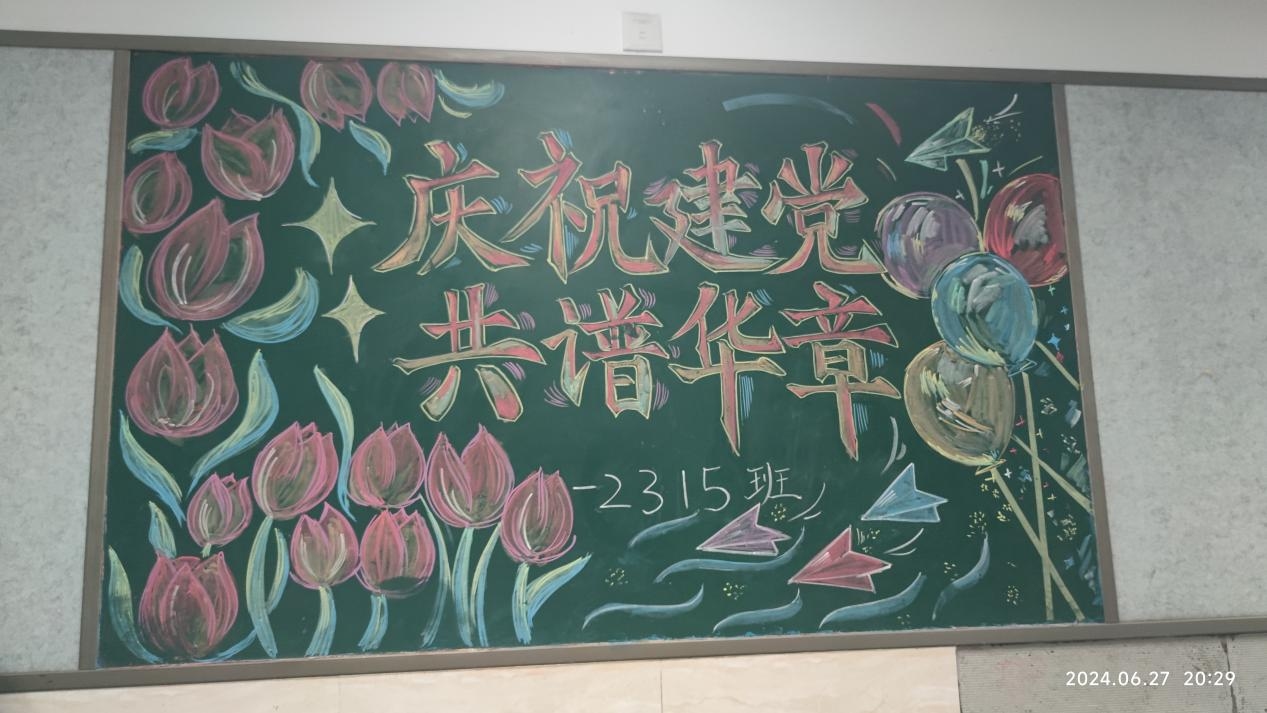 庆祝建党
共谱华章
-2315班
2024.06.27 20:29